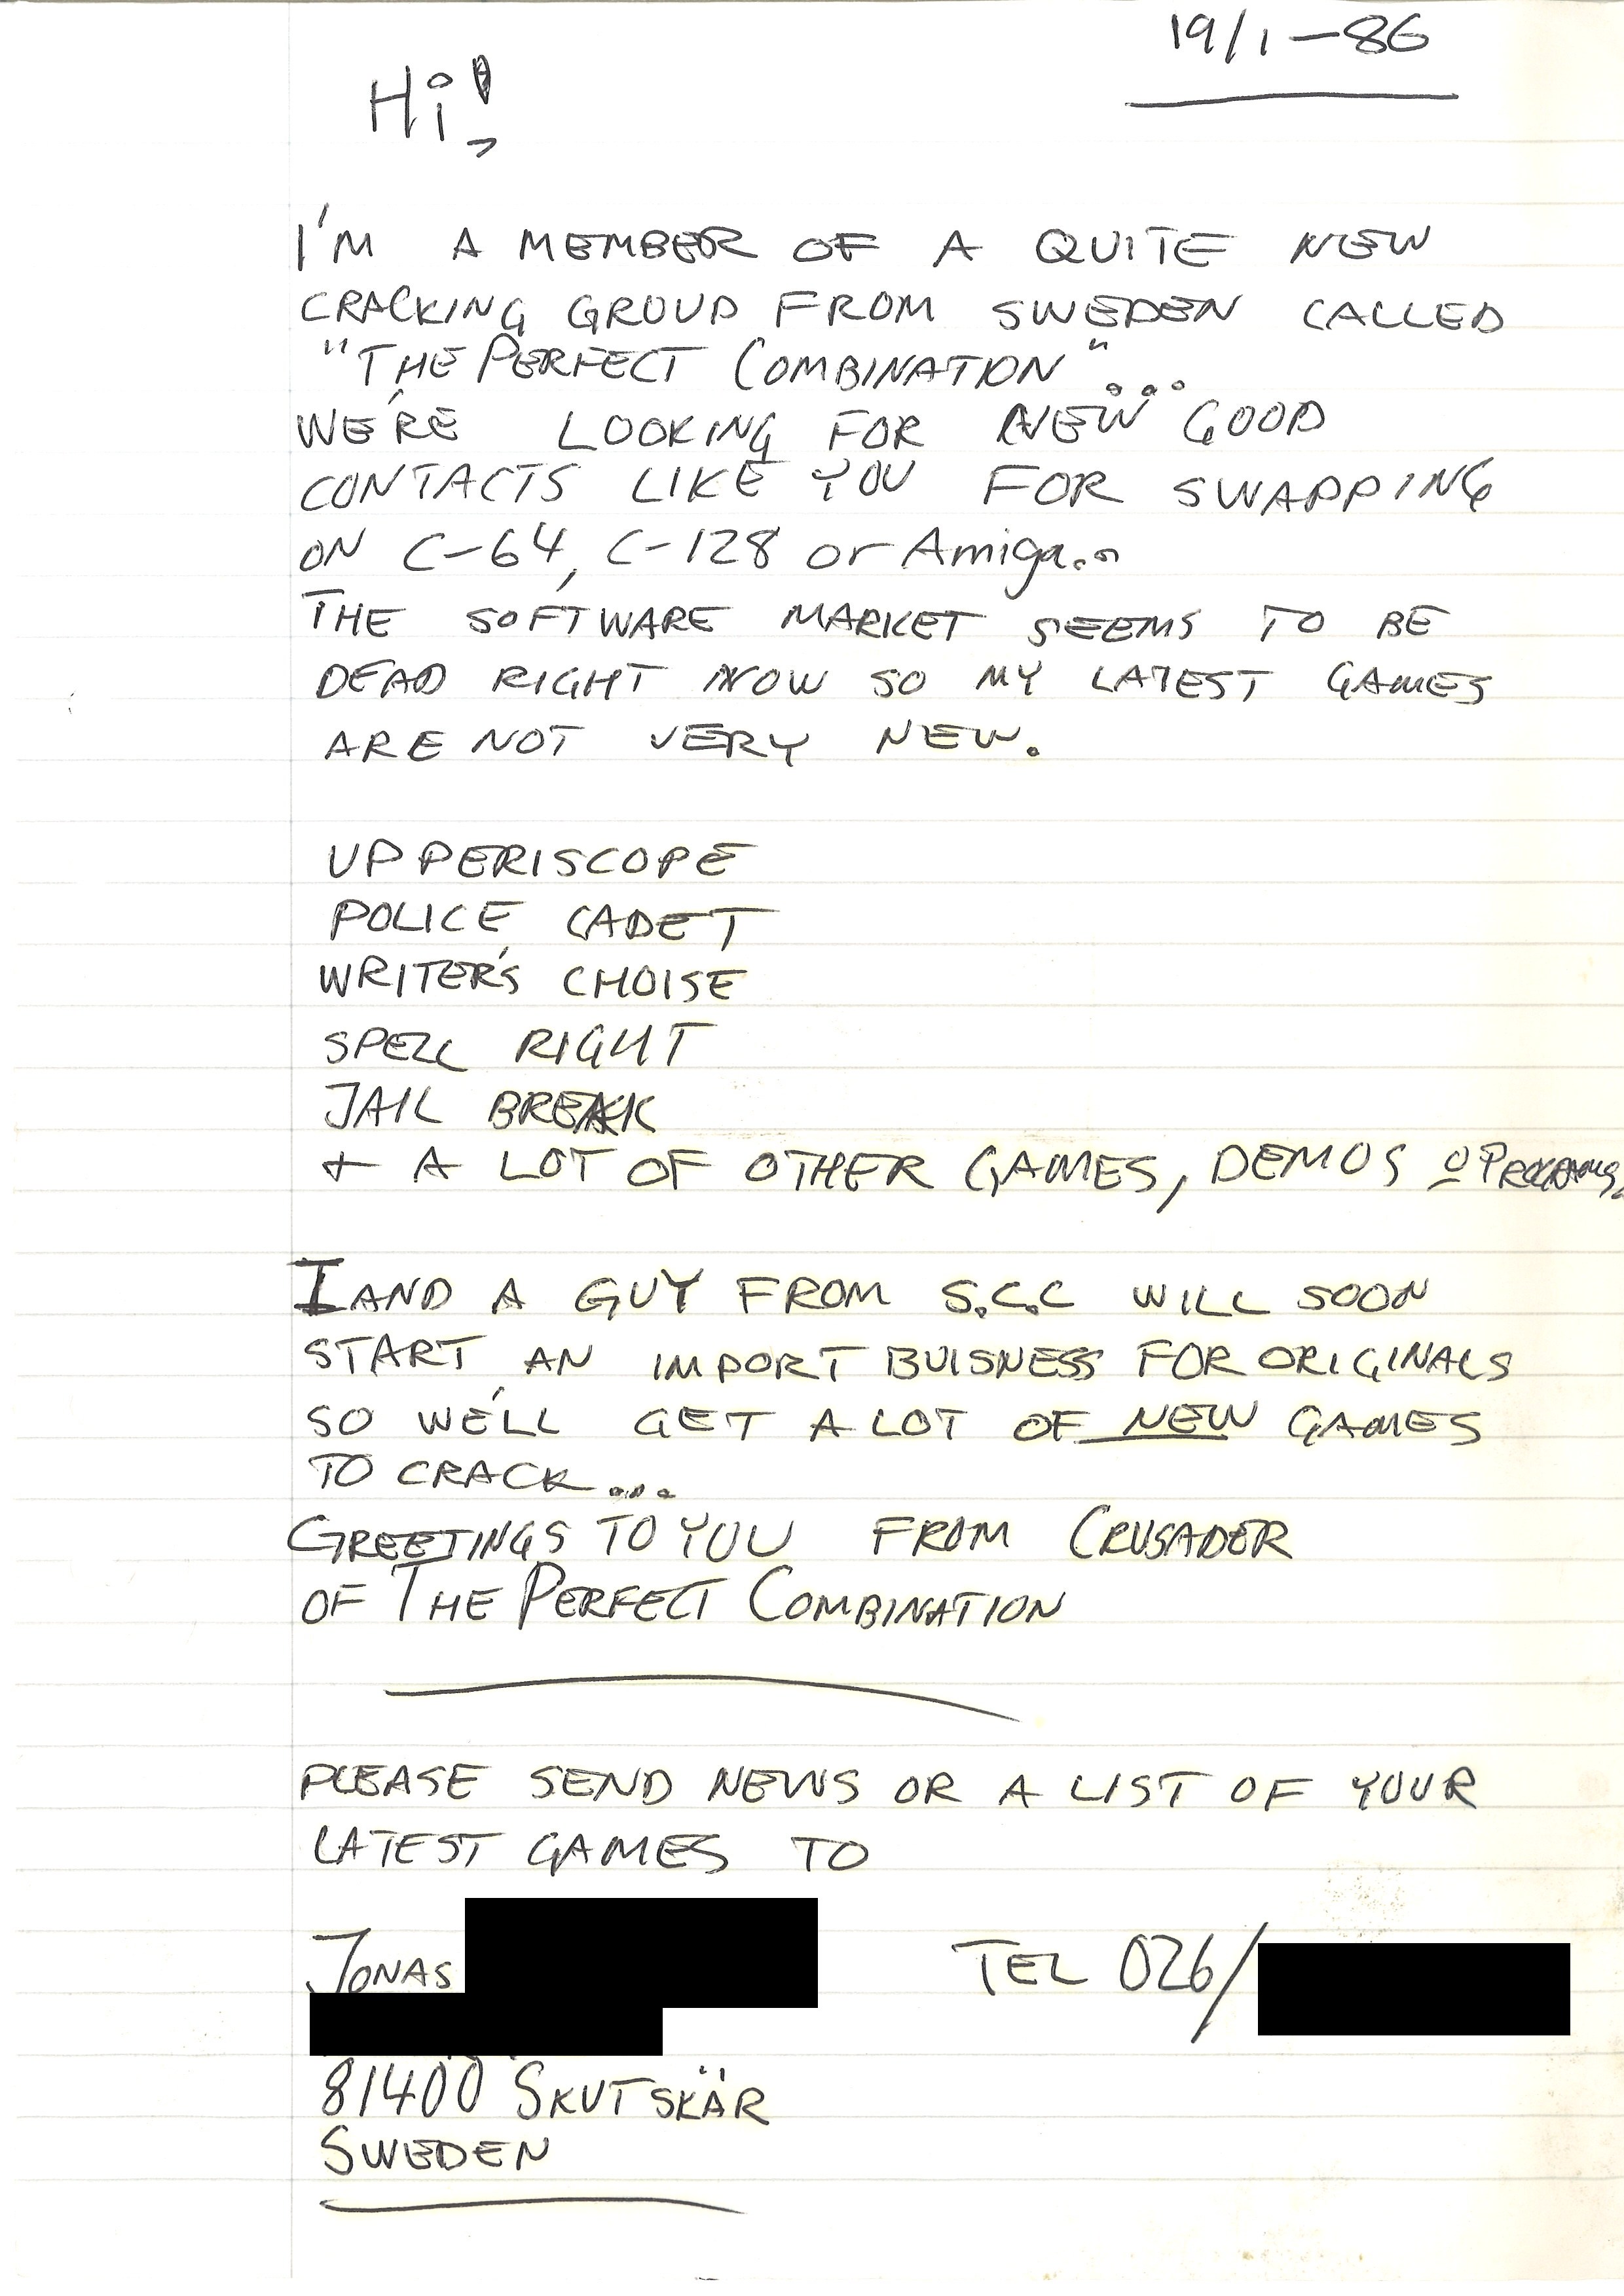 19/1-86
Hi!
I'M A MEMBER OF A QUITE NEW
CRACKING GROUP FROM SWEDEN CALLED
"THE PERFECT COMBINATION"...
WE'RE LOOKING FOR NEW GOOD
CONTACTS LIKE YOU FOR SWAPPING
ON C-64, C-128 or Amiga...
THE SOFTWARE MARKET SEEMS TO BE
DEAD RIGHT NOW SO MY LATEST GAMES
ARE NOT VERY NEW.
UP PERISCOPE
POLICE CADET
WRITER'S CHOISE
SPELL RIGHT
JAIL BREAK
+ A LOT OF OTHER GAMES, DEMOS o PROGRAMS.
I AND A GUY FROM S.C.C WILL SOON
START AN IMPORT BUISNESS FOR ORIGINALS
SO WE'LL GET A LOT OF NEW GAMES
TO CRACK....
GREETINGS TO YOU FROM CRUSADER
OF THE PERFECT COMBINATION
PLEASE SEND NEWS OR A LIST OF YOUR
LATEST GAMES TO
JONAS TEL 026/
81400 SKUTSKÄR
SWEDEN